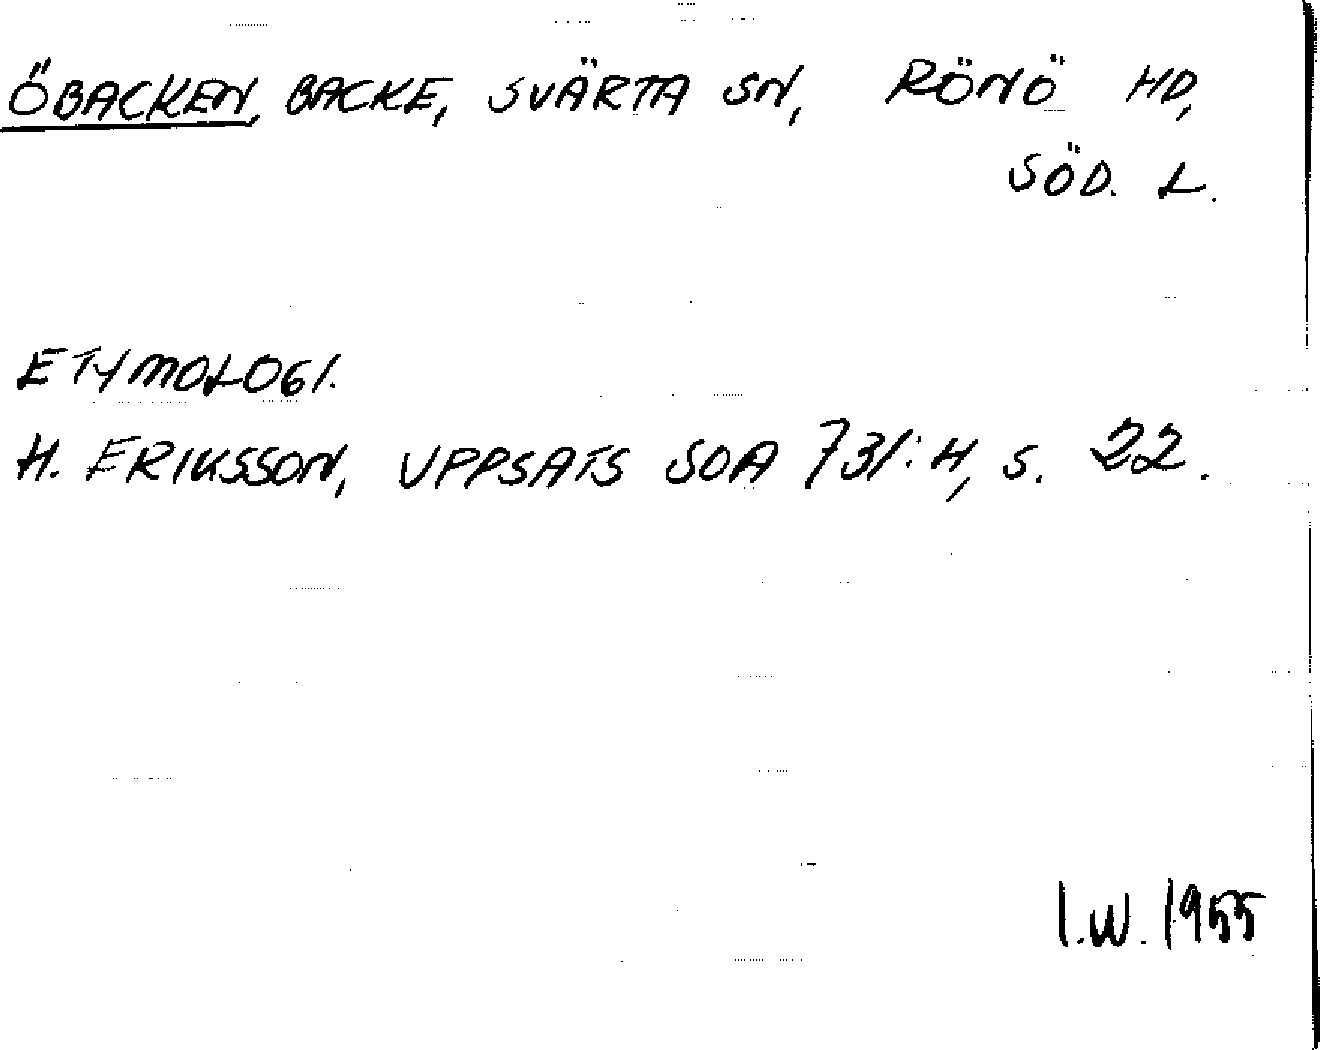 ÖBACKEN, BACKE, SVÄRTA SN, RÖNÖ HD,
SÖD. L.
ETYMOLOGI.
H. ERIKSSON, UPPSATS SOA 731:H, S. 22.
I.W. 1955